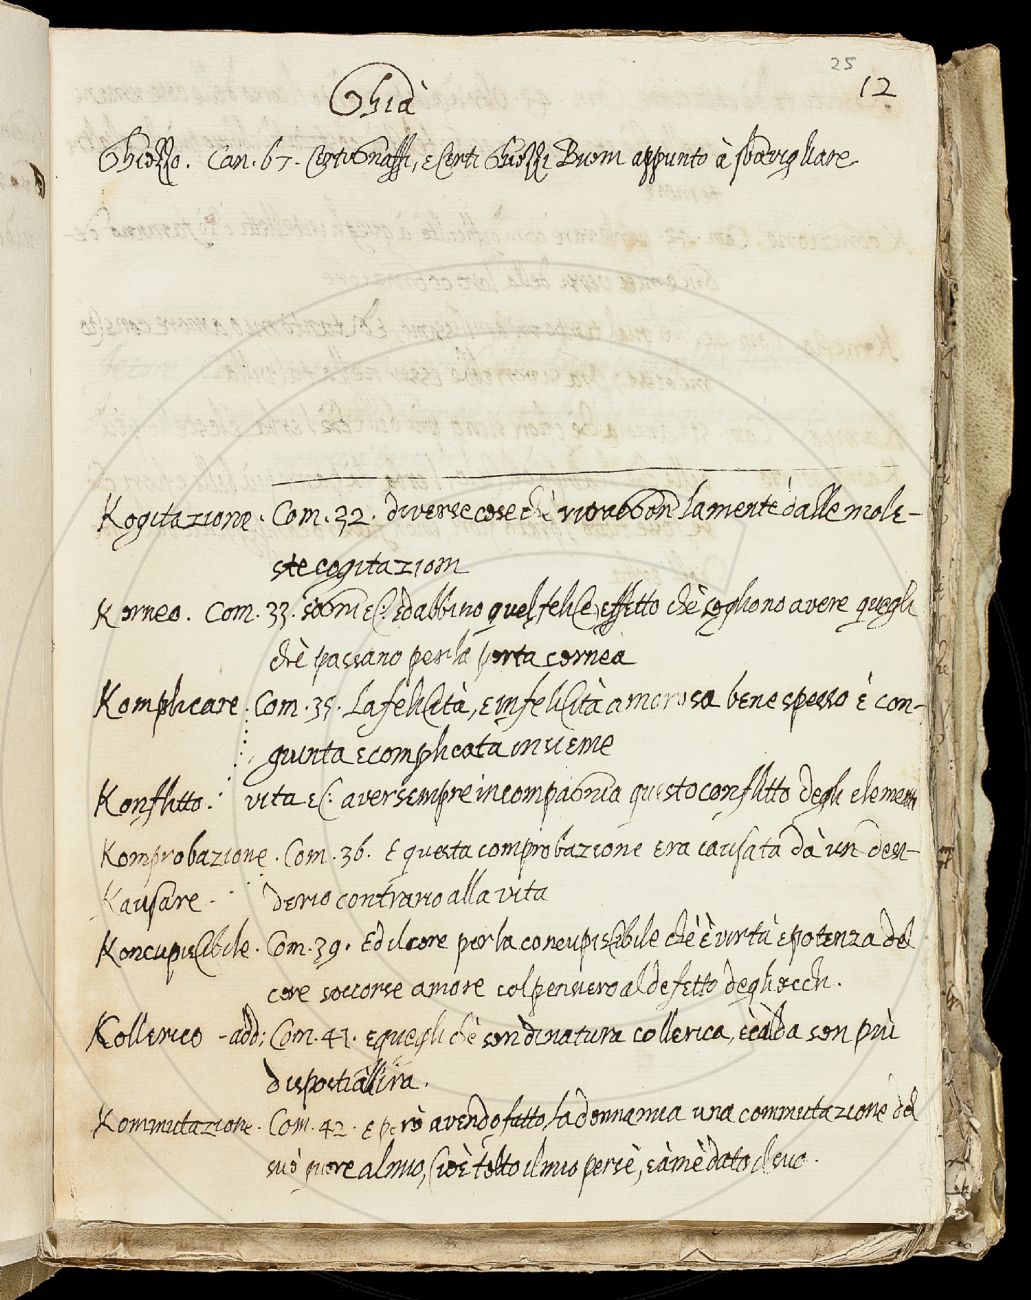 25
12
Ghia
Ghiozzo. Can. 67. Certi Graffi, e Certi Ghiozzi Buoni appunto à
Kogitazione. Com. 32. diverse cose che la mente dalle mole-
ste cogitazioni
Korneo. Com. 33. sogni &c. ed abbino quel felice effetto chè sogliono avere quegli
chè passano per la porta cornea
Komplicare. Com. 35. La felicità, e infelicità amorosa bene spesso è con-
giunta e complicata insieme
Konflitto. vita &c. aver sempre in compagnia questo conflitto degli elementi
Komprobazione. Com. 36. e questa comprobazione era causata dà un desi-
Kausare. derio contrario alla vita
Koncupiscibile. Com. 39. Ed il core per la concupiscibile chè è virtù e potenza del
core soccorse amore col pensiero al defetto degli occhi.
Kollerico - add: Com. 41. e quegli chè son di natura collerica, e calda son più
disposti all'ira.
Kommutazione. Com. 42. e però avendo fatto la donna mia una commutazione del
suo core al mio, cioè tolto il mio per sè, e à mè dato il suo.